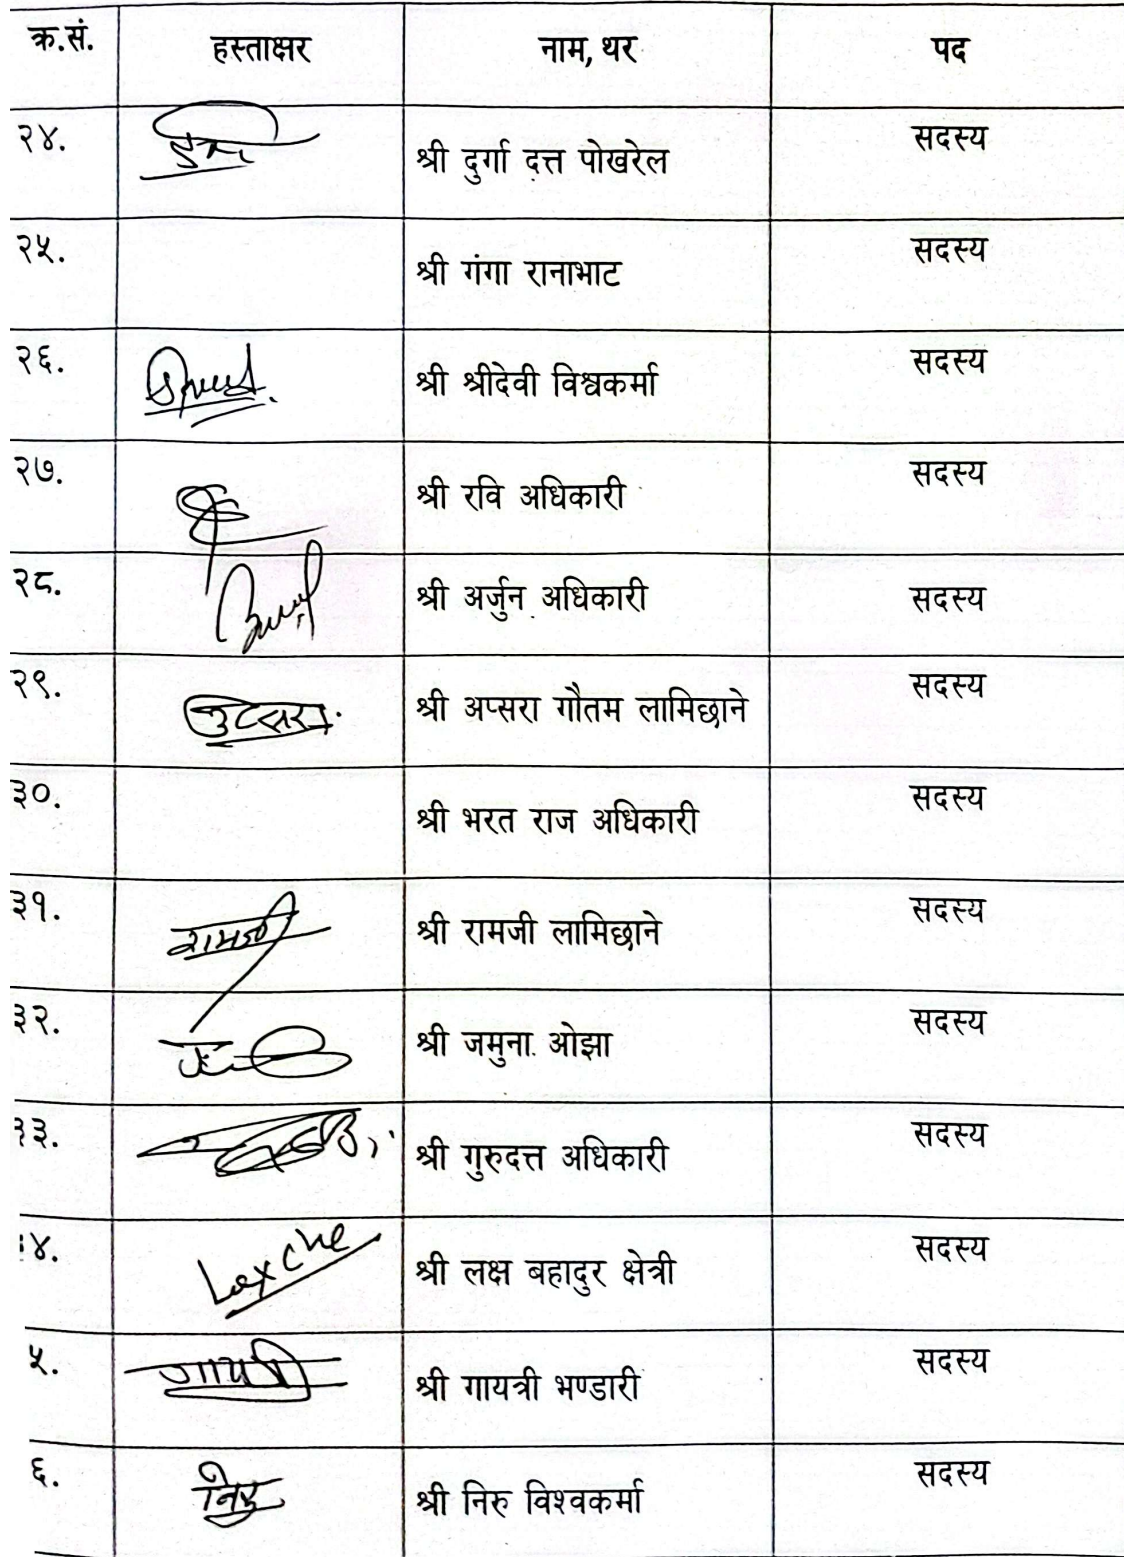 क्र.सं. हस्ताक्षर नाम, थर पद
२४. श्री दुर्गा दत्त पोखरेल सदस्य
२५. श्री गंगा रानाभाट सदस्य
२६. श्री श्रीदेवी विश्वकर्मा सदस्य
२७. श्री रवि अधिकारी सदस्य
२८. श्री अर्जुन अधिकारी सदस्य
२९. श्री अप्सरा गौतम लामिछाने सदस्य
३०. श्री भरत राज अधिकारी सदस्य
३१. रामजी श्री रामजी लामिछाने सदस्य
३२. श्री जमुना ओझा सदस्य
३३. श्री गुरुदत्त अधिकारी सदस्य
४. श्री लक्ष बहादुर क्षेत्री सदस्य
५. गायत्री श्री गायत्री भण्डारी सदस्य
६. निरु श्री निरु विश्वकर्मा सदस्य